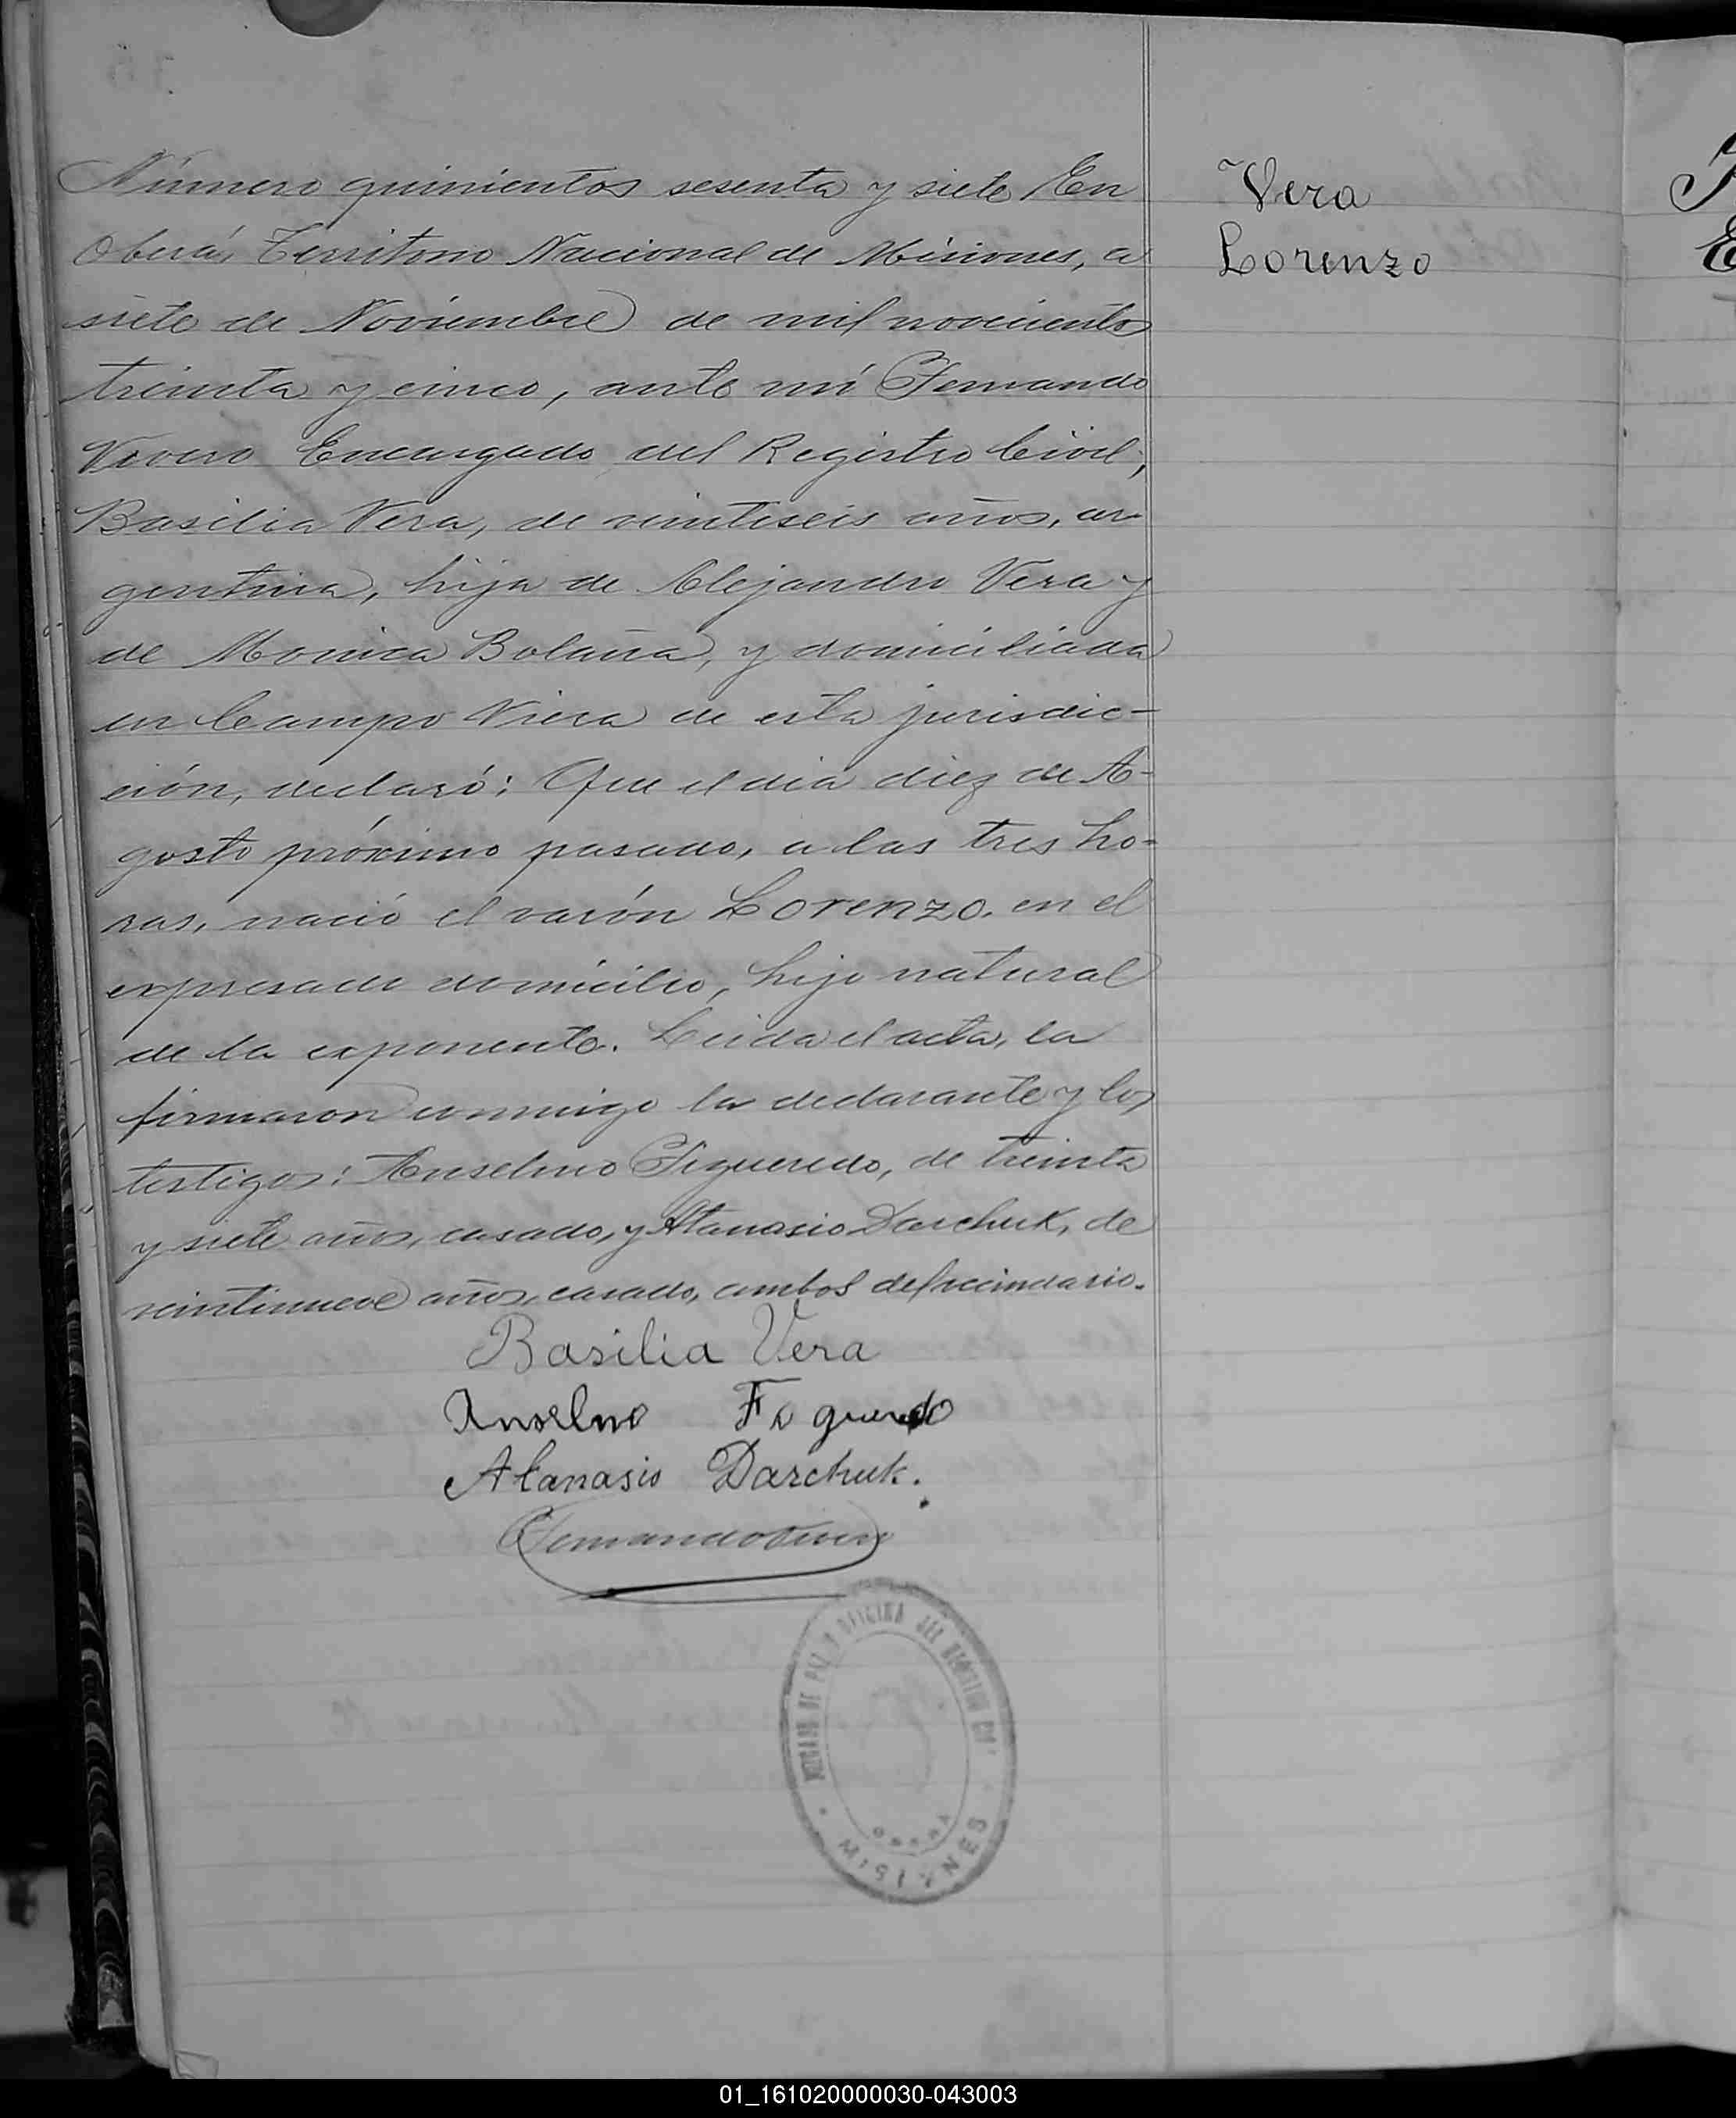 Número quinientos sesenta y siete En
Oberá, Territorio Nacional de Misiones, a
siete de Noviembre de mil novecientos
treinta y cinco, ante mí Fernando
Vivero Encargado del Registro Civil,
Basilia Vera, de veintiseis años, ar
gentina, hija de Alejandro Vera y
de Monica Bolaña, y domiciliada
en Campo Viera de esta jurisdic-
ción, declaró: Que el dia diez de A-
gosto próximo pasado, a las tres ho-
ras, nació el varón Lorenzo, en el
expresado domicilio, hijo natural
de la exponente. Leida el acta, la
firmaron conmigo la declarante y los
testigos: Anselmo Figueredo, de treinta
y siete años, casado, y Atanasio Darchuk, de
veintinueve años, casado, ambos del vecindario.
Basilia Vera
Anselmo Figueredo
Atanasio Darchuk.
Fernando Vivero
JUZGADO DE PAZ Y OFICINA DEL REGISTRO CIVIL
OBERÁ
MISIONES
Vera
Lorenzo
01_161020000030-043003